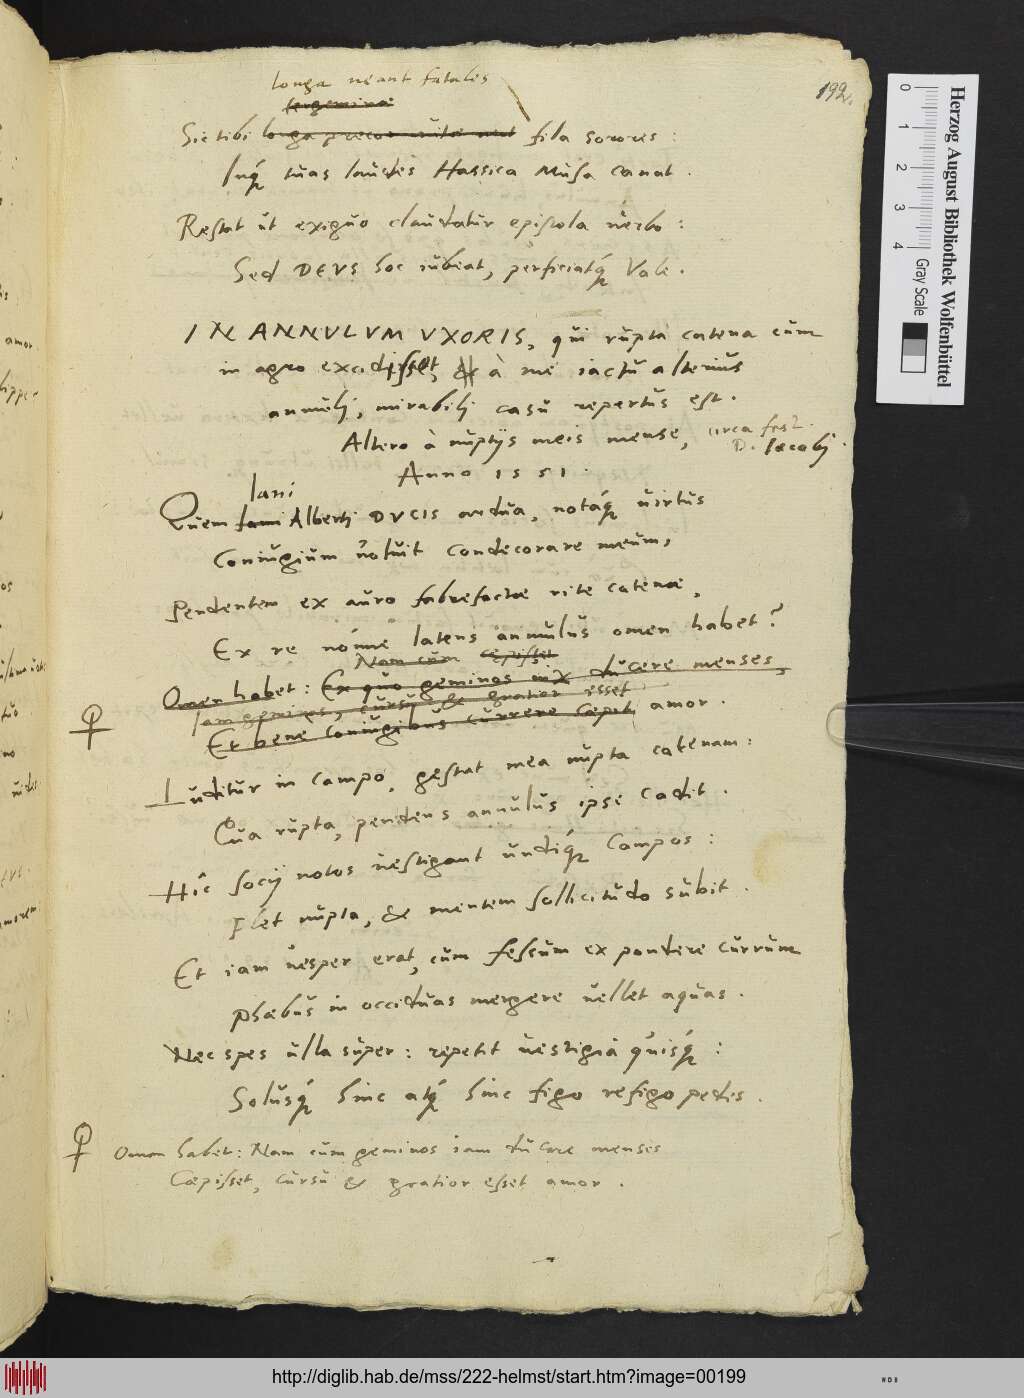 longa neant fatales
tergemina
192.
Sic tibi longa precor vitæ fila sorores:
Inq́ tuas laudes Hassica Musa canat.
Restat ut exiguo claudatur epistola verbo:
Sed DEUS hoc iubeat, perficiatq́ Vale.
IN ANNULUM UXORIS, qui rupta catena cum
in agro excidisset, à me iactu alterius
annuli, mirabili casu repertus est.
Altero à nuptijs meis mense, circa fest.
D. Iacobi.
Anno 1551.
Iani
Quem Alberti DUCIS ardua, notaq́ virtus
Coniugium voluit condecorare meum,
Pendentem ex auro fabrefactæ rite catenæ,
Ex re nónne latens annulus omen habet?
Nam cum cepisset
Omen habet: Ex quo geminos vix ducere menses,
Iam geminos, cursu & gratior esset
Et bene coniugibus currere cæpit amor.
Luditur in campo, gestat mea nupta catenam:
Qua rupta, pendens annulus ipse cadit.
Hîc socij notos vestigant undiq́ campos:
Flet nupta, & mentem sollicitudo subit.
Et iam vesper erat, cùm fessum ex pondere currum
Phæbus in occiduas mergere vellet aquas.
Nec spes ulla super: repetit vestigia quisq́:
Solusq́ hinc atq́ hinc figo refigo pedes.
Omen habet: Nam cum geminos iam ducere menses
Cæpisset, cursu & gratior esset amor.
Herzog August Bibliothek Wolfenbüttel
0 1 2 3 4
Gray Scale
http://diglib.hab.de/mss/222-helmst/start.htm?image=00199